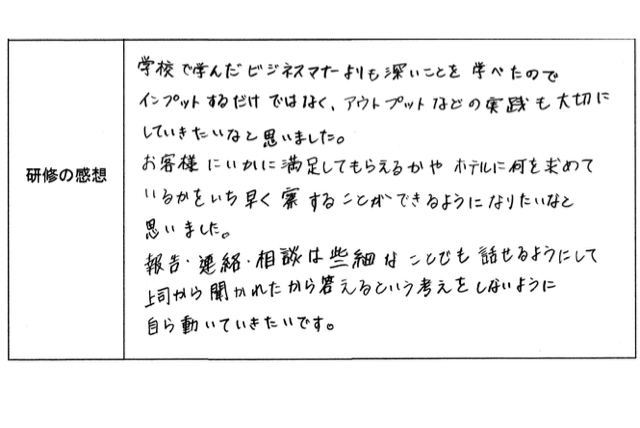 研修の感想
学校で学んだビジネスマナーよりも深いことを学べたので
インプットするだけではなく、アウトプットなどの実践も大切に
していきたいなと思いました。
お客様にいかに満足してもらえるかやホテルに何を求めて
いるかをいち早く察することができるようになりたいなと
思いました。
報告・連絡・相談は些細なことでも話せるようにして
上司から聞かれたから答えるという考えをしないように
自ら動いていきたいです。